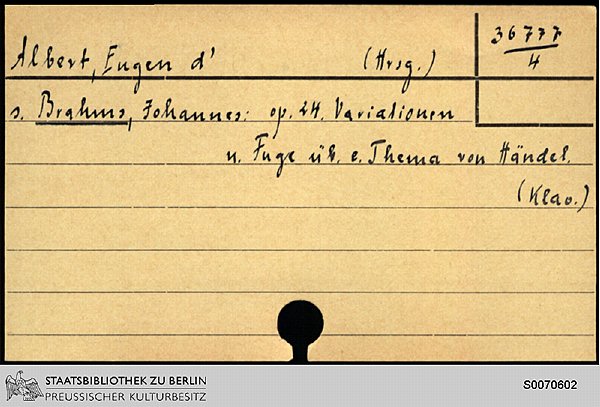 Albert, Eugen d' (Hrsg.) 36777
4
s. Brahms, Johannes: op. 24. Variationen
u. Fuge üb. e. Thema von Händel.
(Klav.)
STAATSBIBLIOTHEK ZU BERLIN
PREUSSISCHER KULTURBESITZ
S0070602